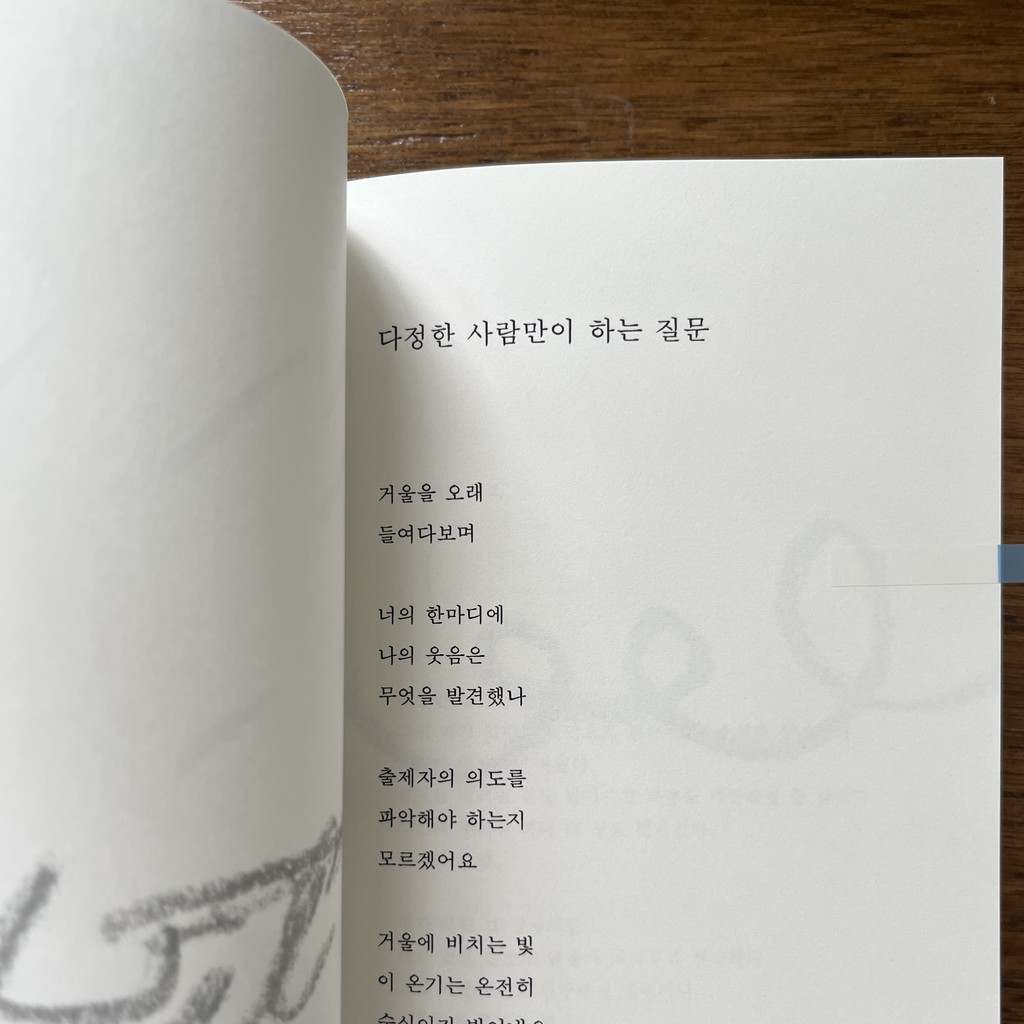 다정한 사람만이 하는 질문
거울을 오래
들여다보며
너의 한마디에
나의 웃음은
무엇을 발견했나
출제자의 의도를
파악해야 하는지
모르겠어요
거울에 비치는 빛
이 온기는 온전히